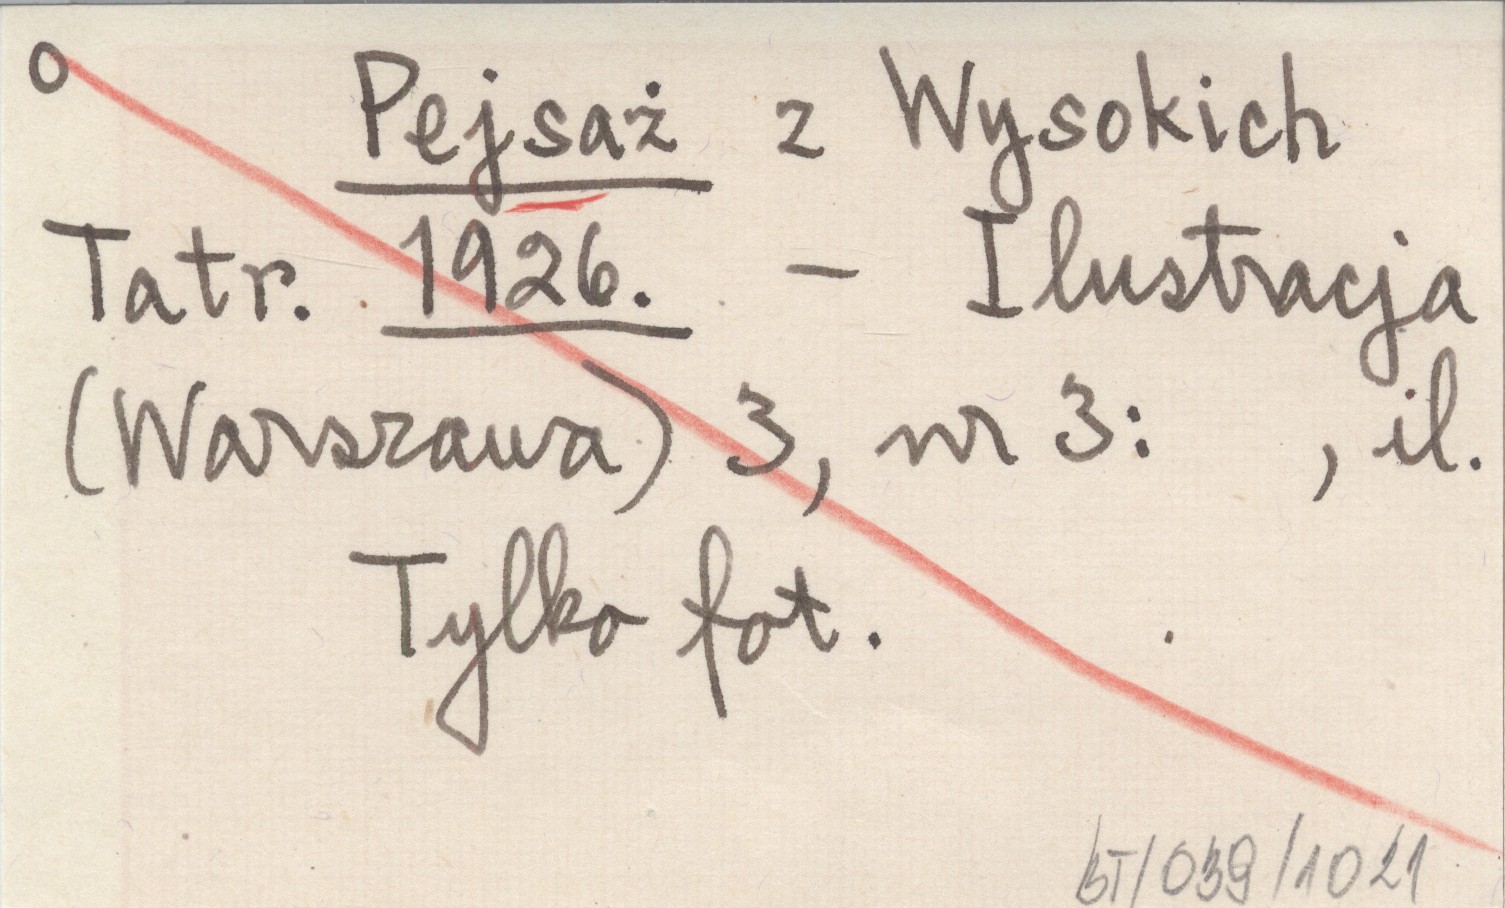 o Pejsaż z Wysokich
Tatr. 1926. – Ilustracja
(Warszawa) 3, nr 3: , il.
Tylko fot.
BT/039/1021